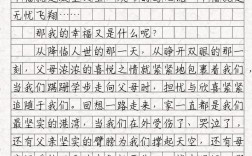 幸福就是
无忧飞翔……
那我的幸福又是什么呢？
从降临人世的那一天，从睁开双眼的那一
刻，父母浓浓的喜悦之情就紧紧地包裹着我们，
当我们蹒跚学步走向父母时，担忧与欣喜紧紧
追随于我们。回想一路走来，家一直都是我们
最坚实的港湾，当我们在外受伤了、哭泣了，
还有父亲坚实的臂膀为我们撑起天空，还有母